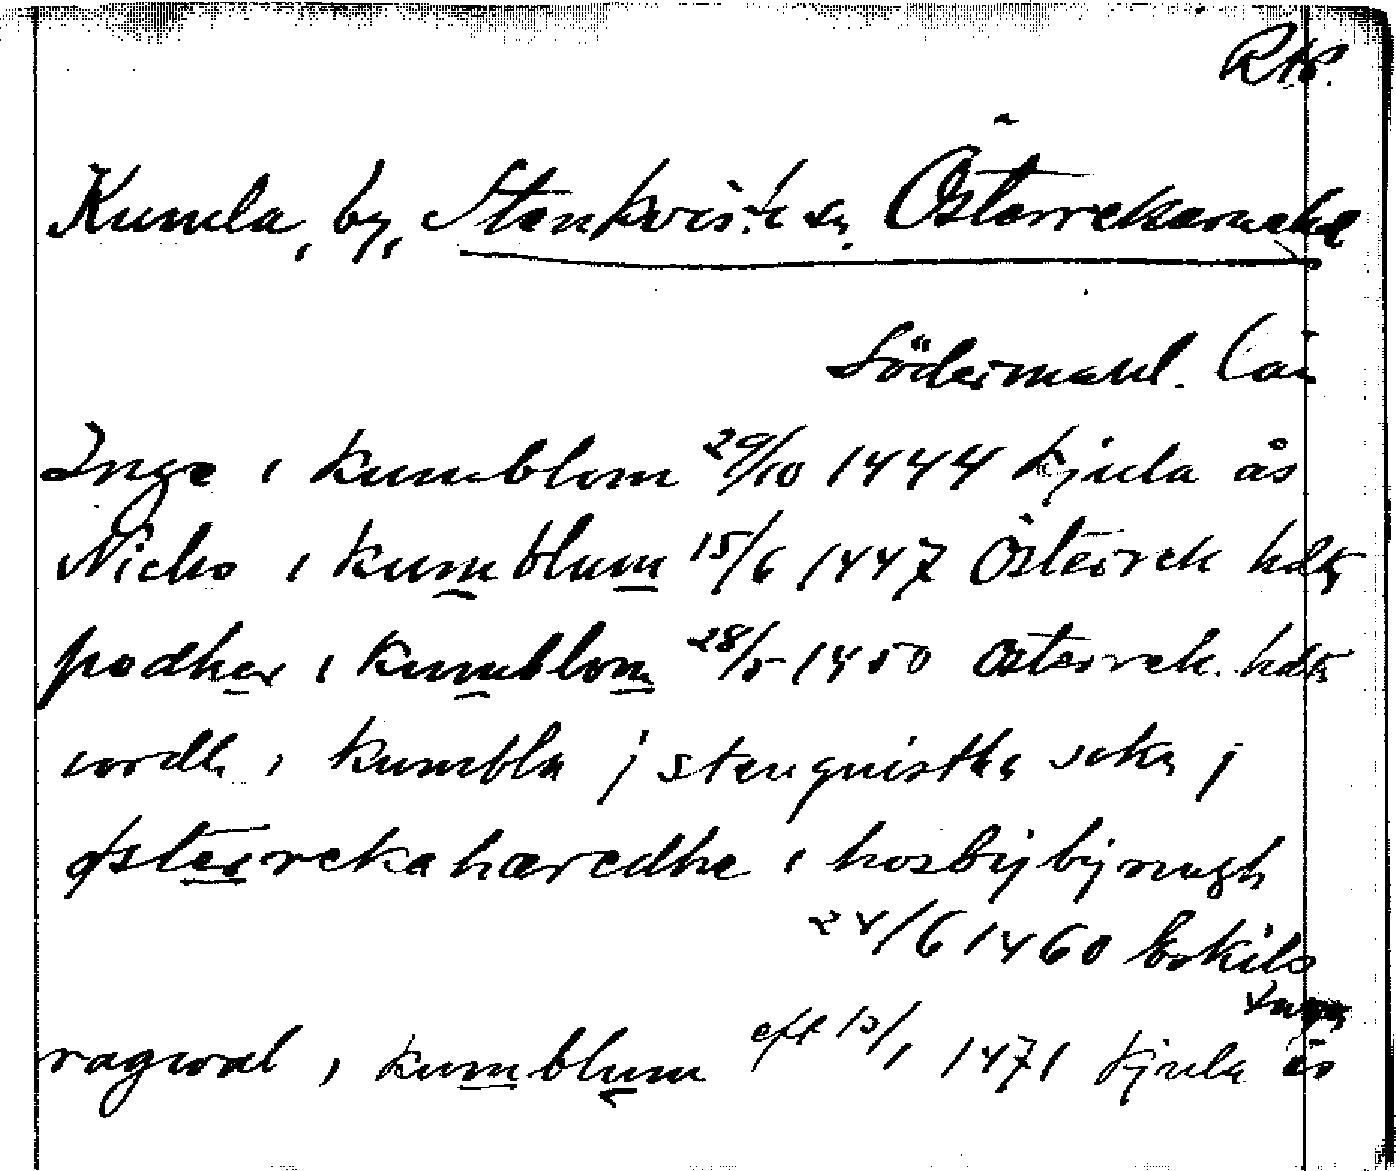 Kumla, by, Stenkvista sn. Österrekarnehd
Södermanl. län
Inge i kumblom 29/10 1444 Kjula ås
Niclis i kumblum 15/6 1447 Österrek hdtg
podher i kumblom 28/5 1450 Österrek. hdtg
wordh i kumbla j stenquistha sokn j
østerrekahæredhe i hosbÿbÿrugh
24/6 1460 Eskils
tuna
ragwal i kumblum eft 13/1 1471 Kjula ås